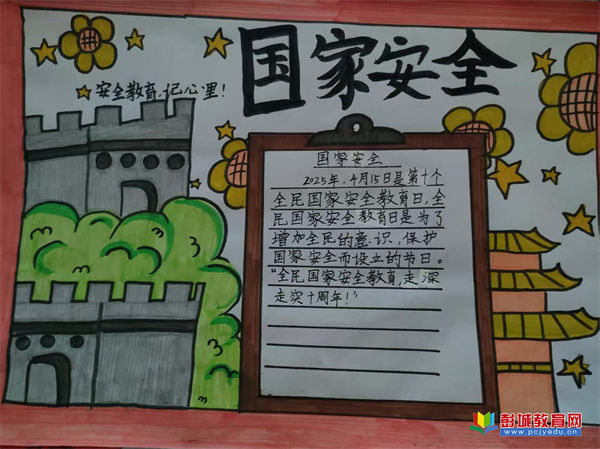 国家安全
安全教育,记心里!
国家安全
2025年,4月15日是第十个
全民国家安全教育日,全
民国家安全教育日是为了
增加全民的意识,保护
国家安全而设立的节日。
“全民国家安全教育,走深
走实十周年!”
彭城教育网
www.pcjyedu.cn